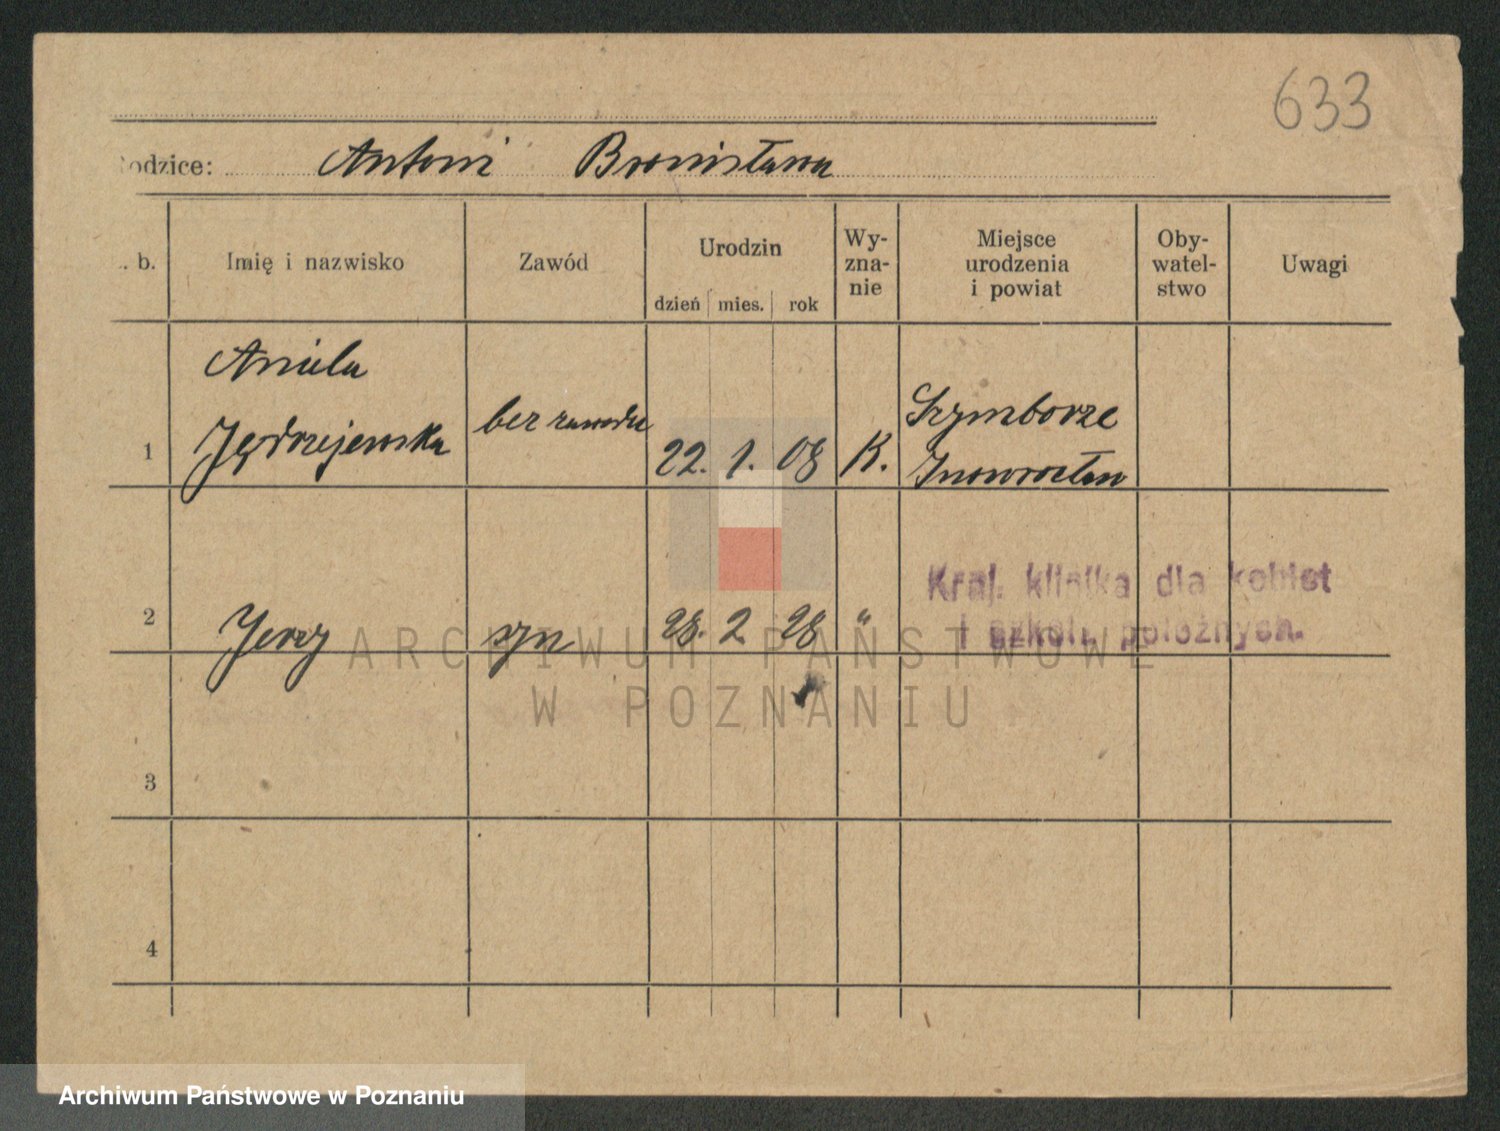 633
odzice: Antoni Bronisława
. b. Imię i nazwisko Zawód Urodzin dzień mies. rok Wy-zna-nie Miejsce urodzenia i powiat Oby-watel-stwo Uwagi
Aniela
1 Jędrzejewska bez zawodu 22. 1. 08 K. Szymborze
Inowrocław
Kraj. klinika dla kobiet
2 Jerzy syn 28. 2 28 "
i szkoł. położnych.
ARCHIWUM PAŃSTWOWE
W POZNANIU
3
4
Archiwum Państwowe w Poznaniu